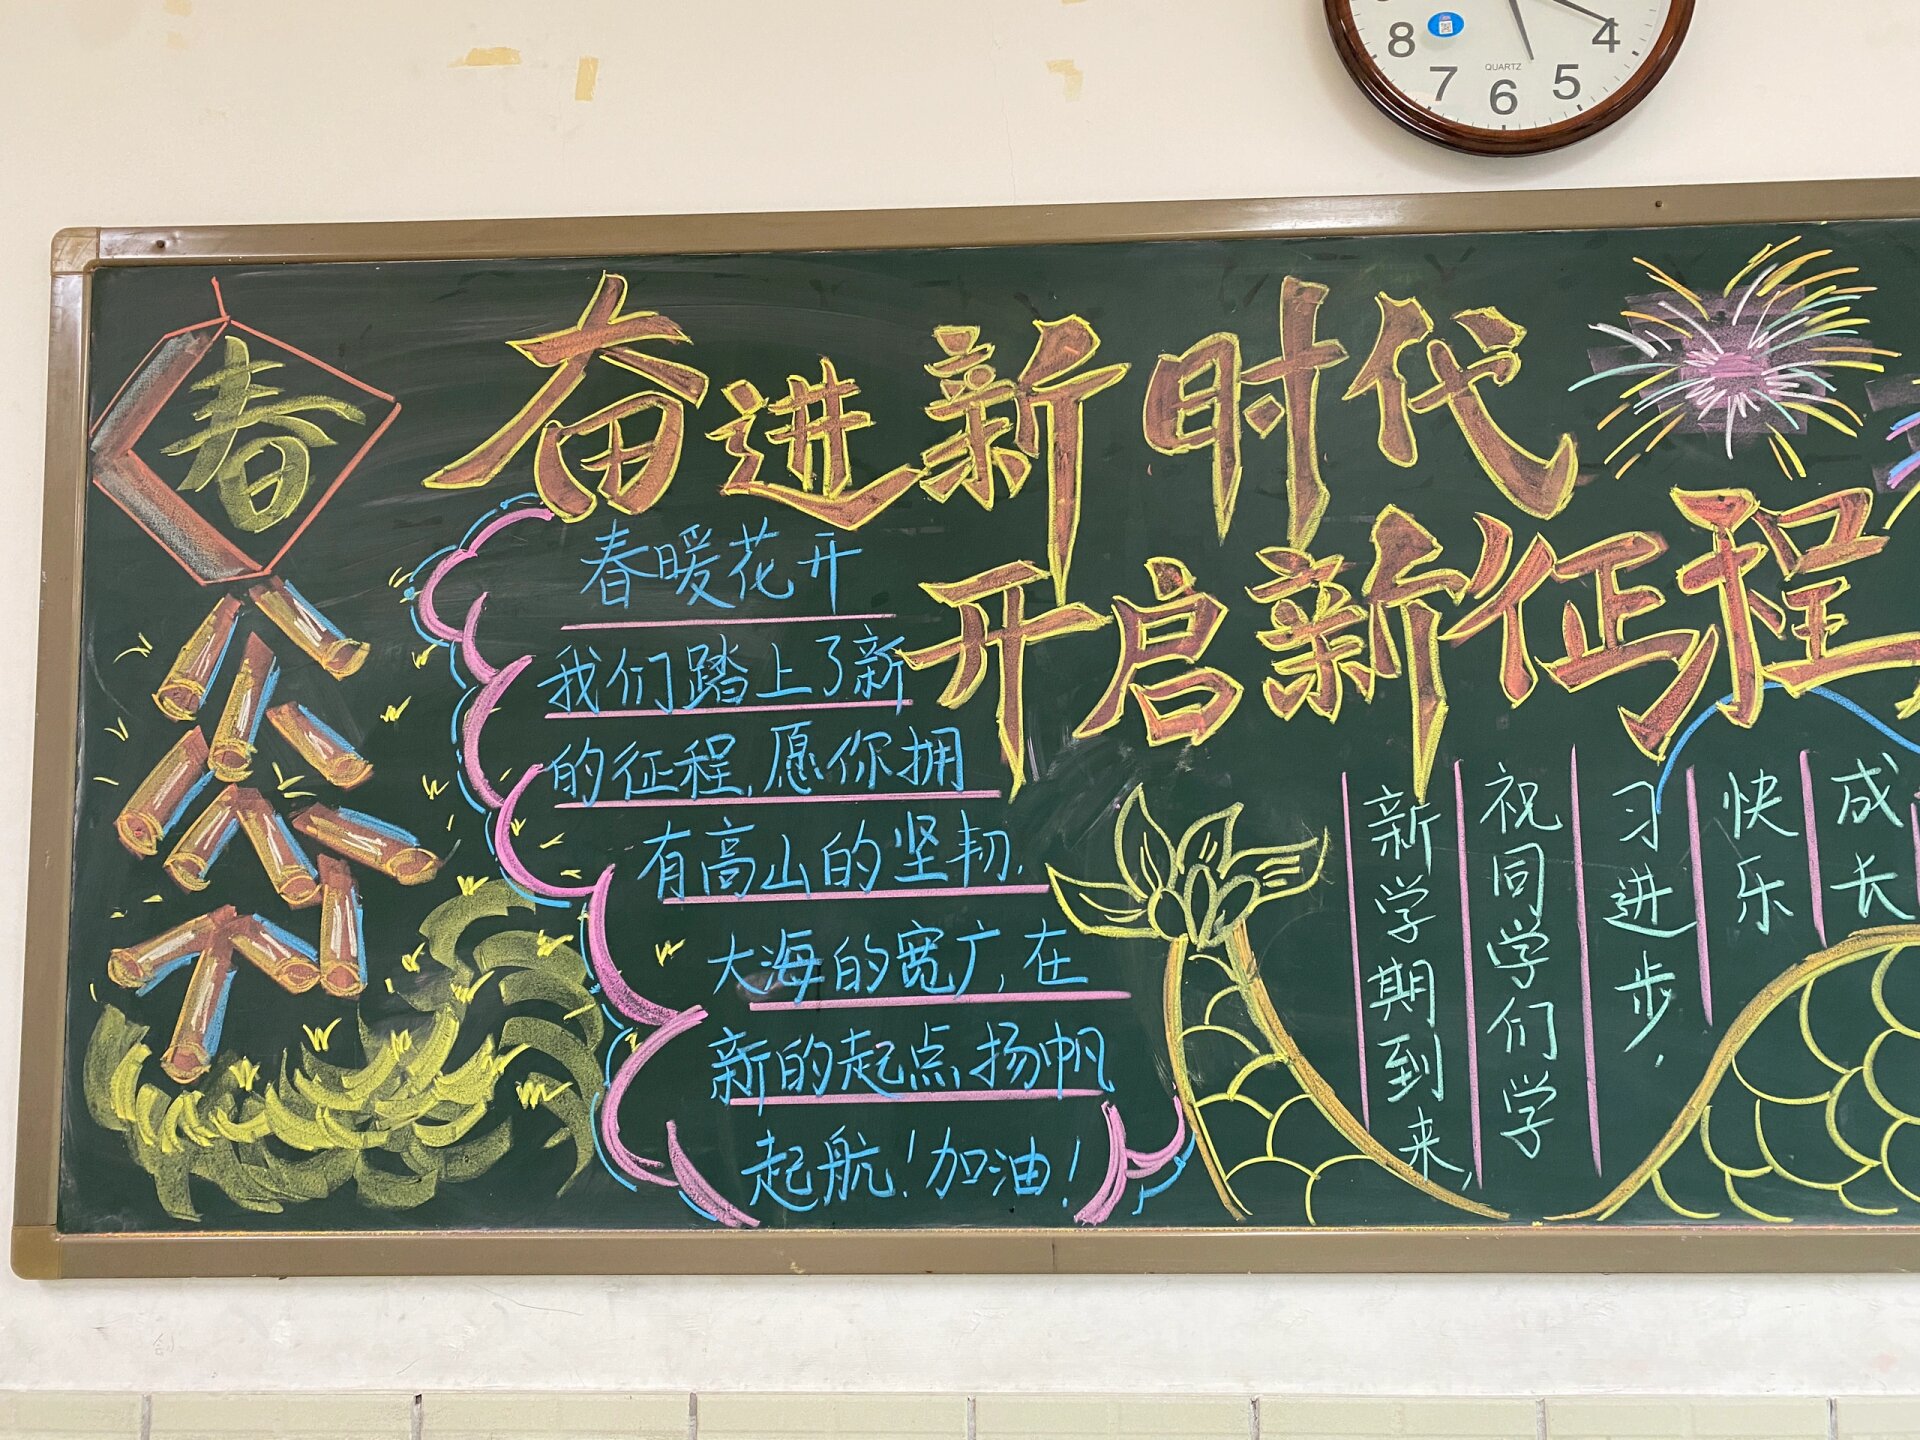 8
7
6
5
4
QUARTZ
春
奋进新时代
开启新征程
春暖花开
我们踏上了新
的征程,愿你拥
有高山的坚韧,
大海的宽广,在
新的起点扬帆
起航!加油!
新学期到来,
祝同学们学
习进步,
快乐
成长